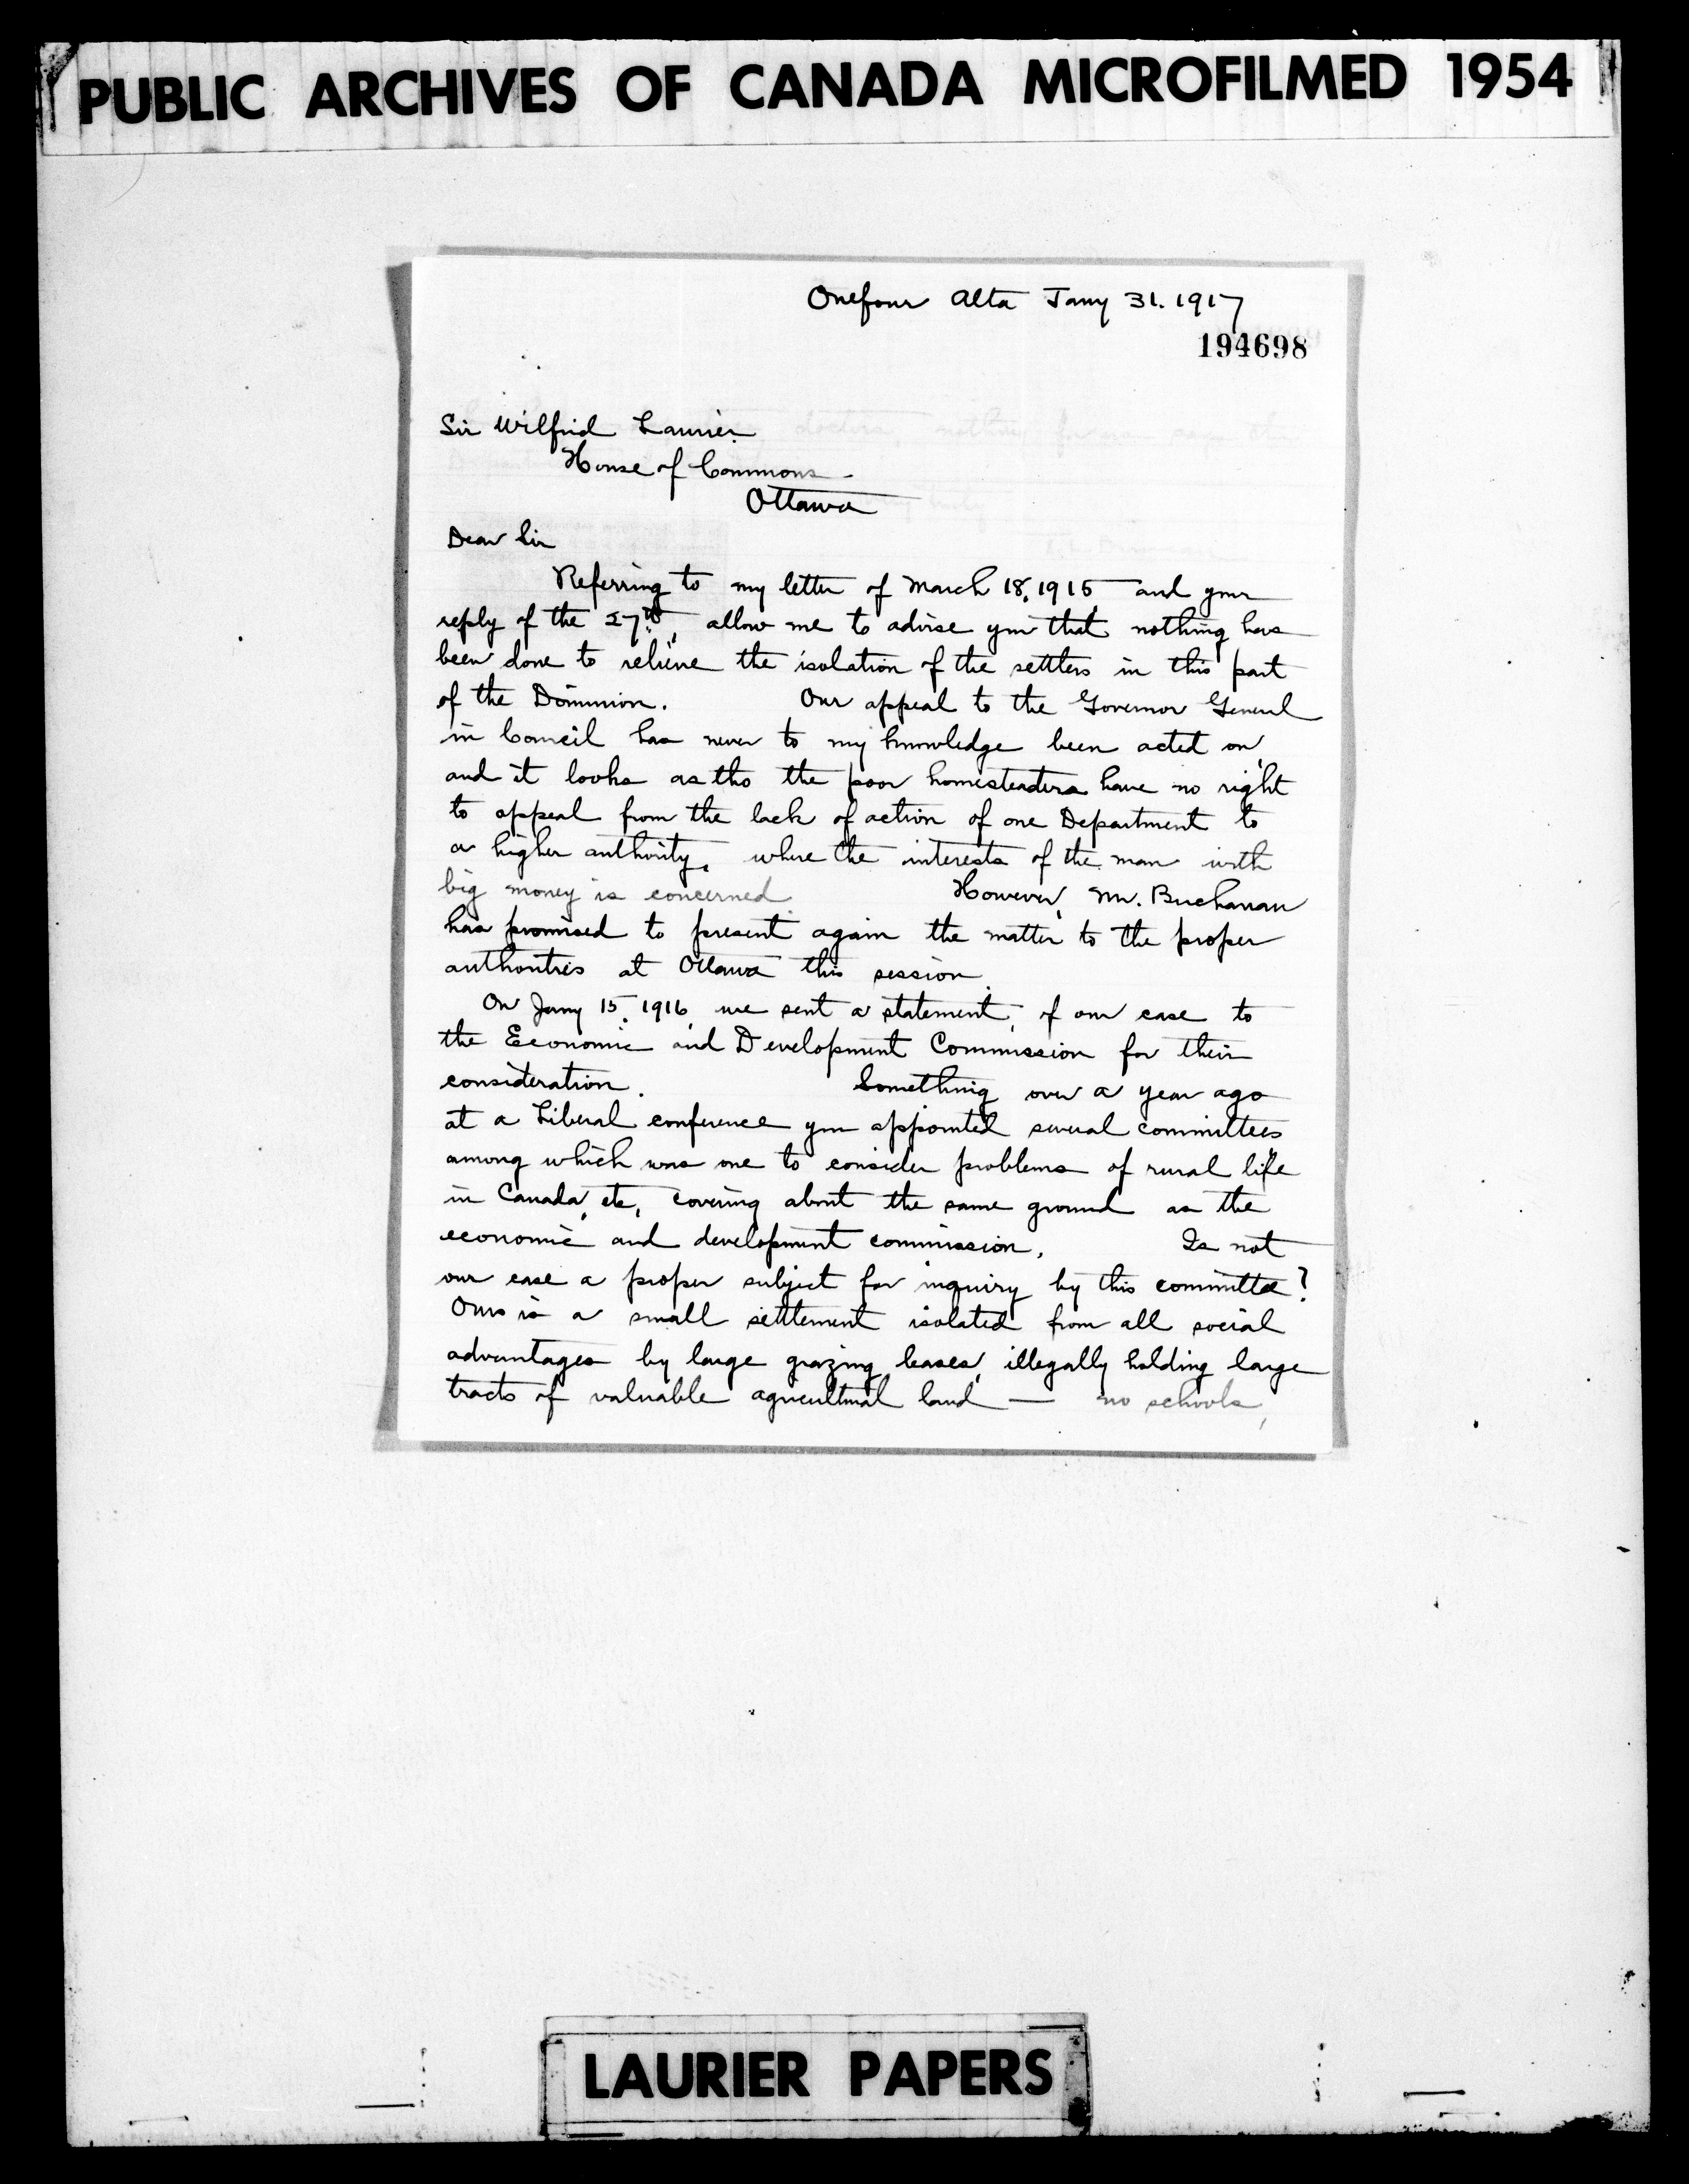 PUBLIC ARCHIVES OF CANADA MICROFILMED 1954
Onefour Alta Jany 31. 1917
194698
Sir Wilfrid Laurier
House of Commons
Ottawa
Dear Sir
Referring to my letter of March 18, 1915 and your
reply of the 27th, allow me to advise you that nothing has
been done to relieve the isolation of the settlers in this part
of the Dominion. Our appeal to the Governor General
in Council has never to my knowledge been acted on,
and it looks as tho the poor homesteaders have no right
to appeal from the lack of action of one Department to
a higher authority, where the interests of the man with
big money is concerned. However, Mr. Buchanan
has promised to present again the matter to the proper
authorities at Ottawa this session.
On Jany 15, 1916, we sent a statement, of our case to
the Economic and Development Commission for their
consideration. Something over a year ago
at a Liberal conference you appointed several committees
among which was one to consider problems of rural life
in Canada, etc, covering about the same ground as the
economic and development commission. Is not
our case a proper subject for inquiry by this committee?
Ours is a small settlement isolated from all social
advantages by large grazing leases, illegally holding large
tracts of valuable agricultural land — no schools,
LAURIER PAPERS